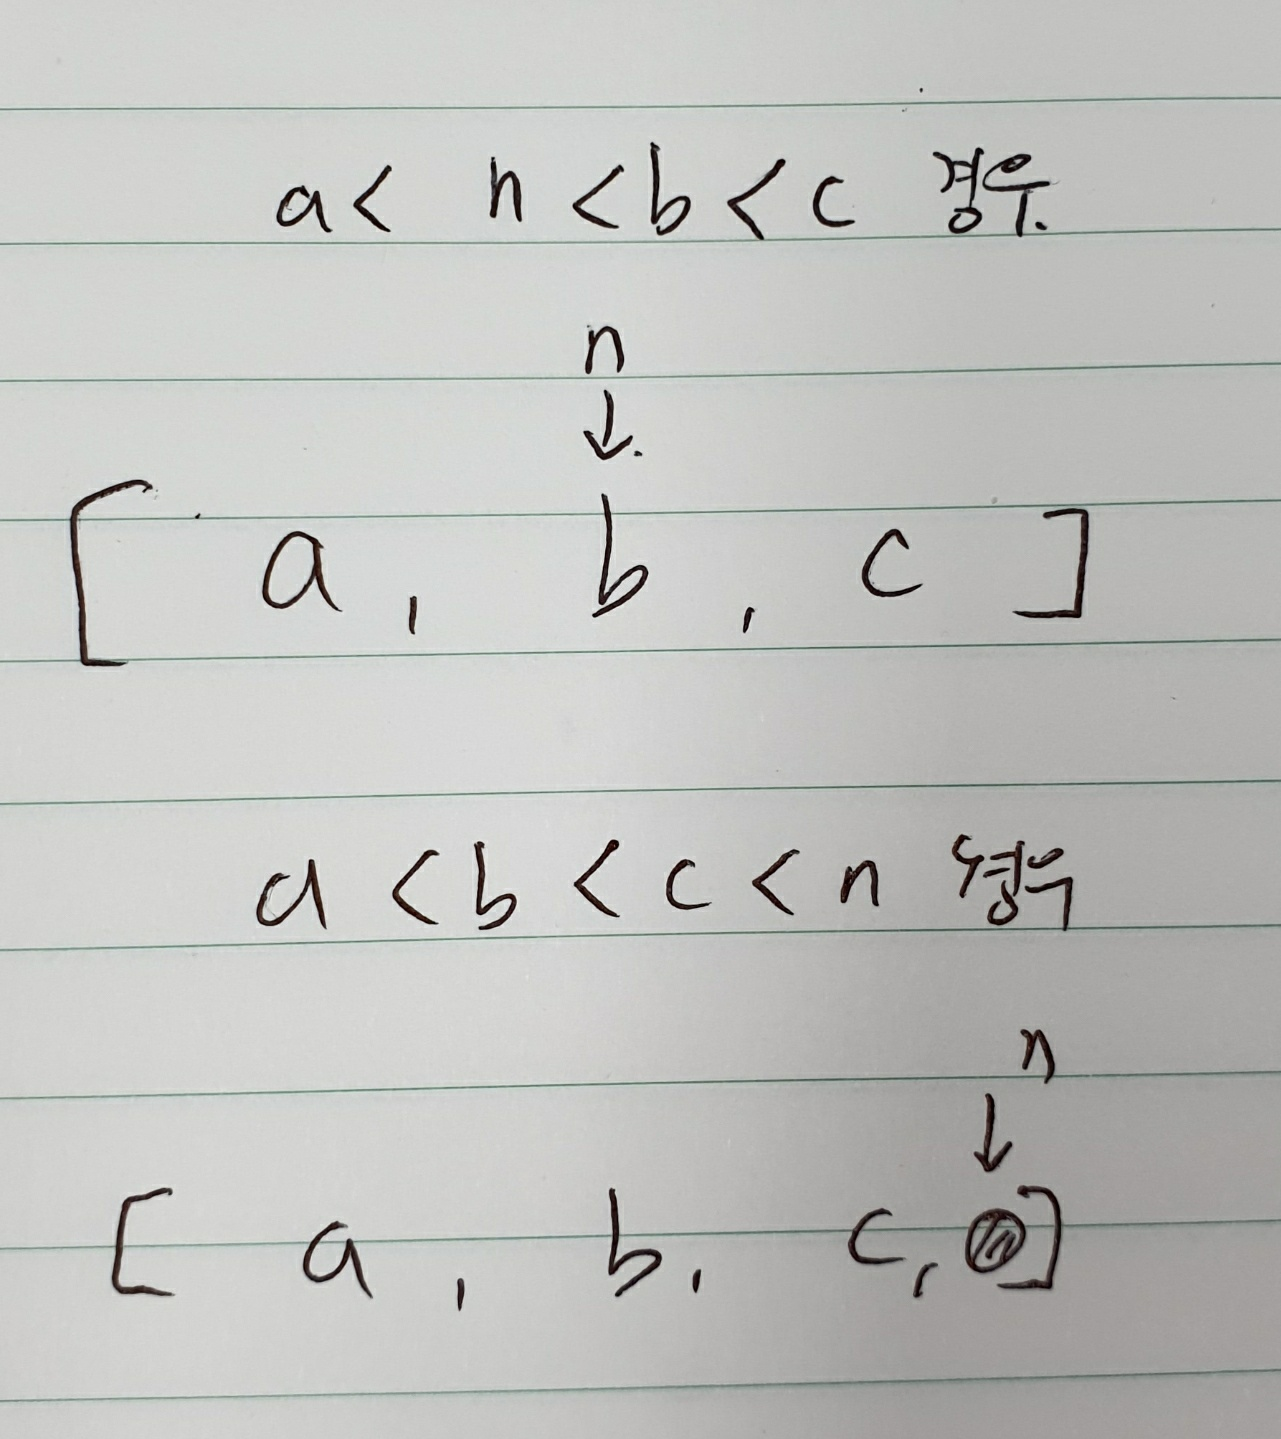 a < n < b < c 경우.
n
↓
[ a , b , c ]
a < b < c < n 경우
n
↓
[ a , b , c , ]